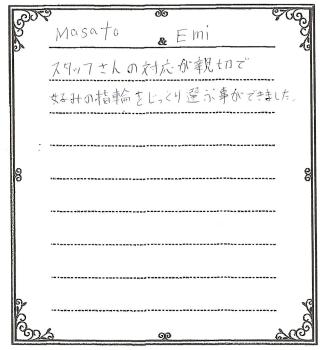 Masato & Emi
スタッフさんの対応が親切で
好みの指輪をじっくり選ぶ事ができました。